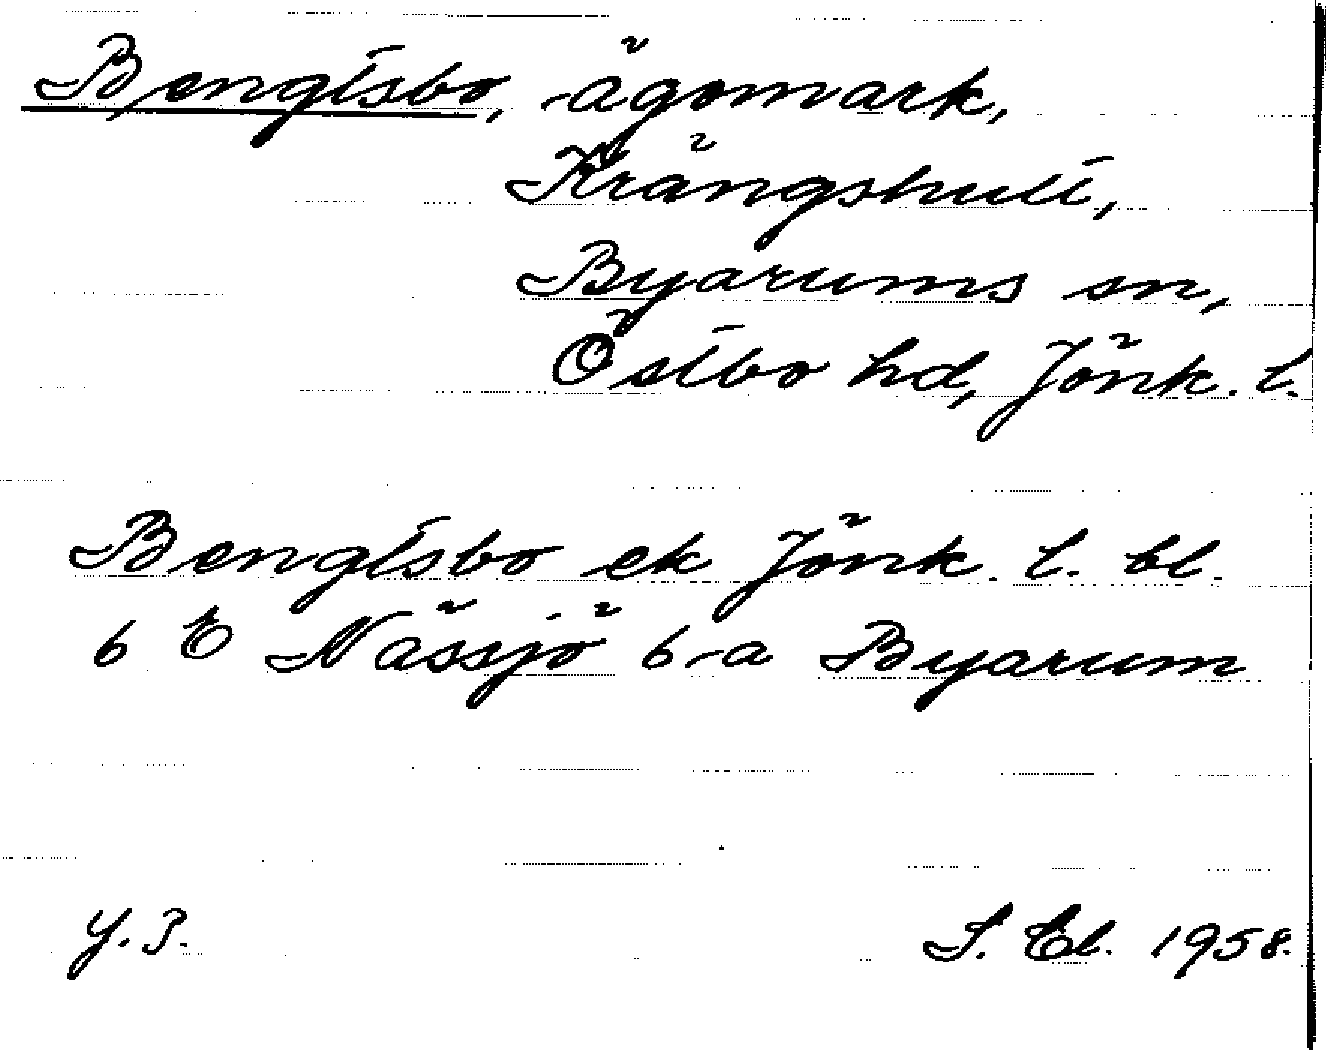 Bengtsbo, -ägomark,
Krängshult,
Byarums sn,
Östbo hd, Jönk. l.
Bengtsbo ek Jönk. l. bl.
6 E Nässjö 6-a Byarum
Y. P. S. El. 1958.